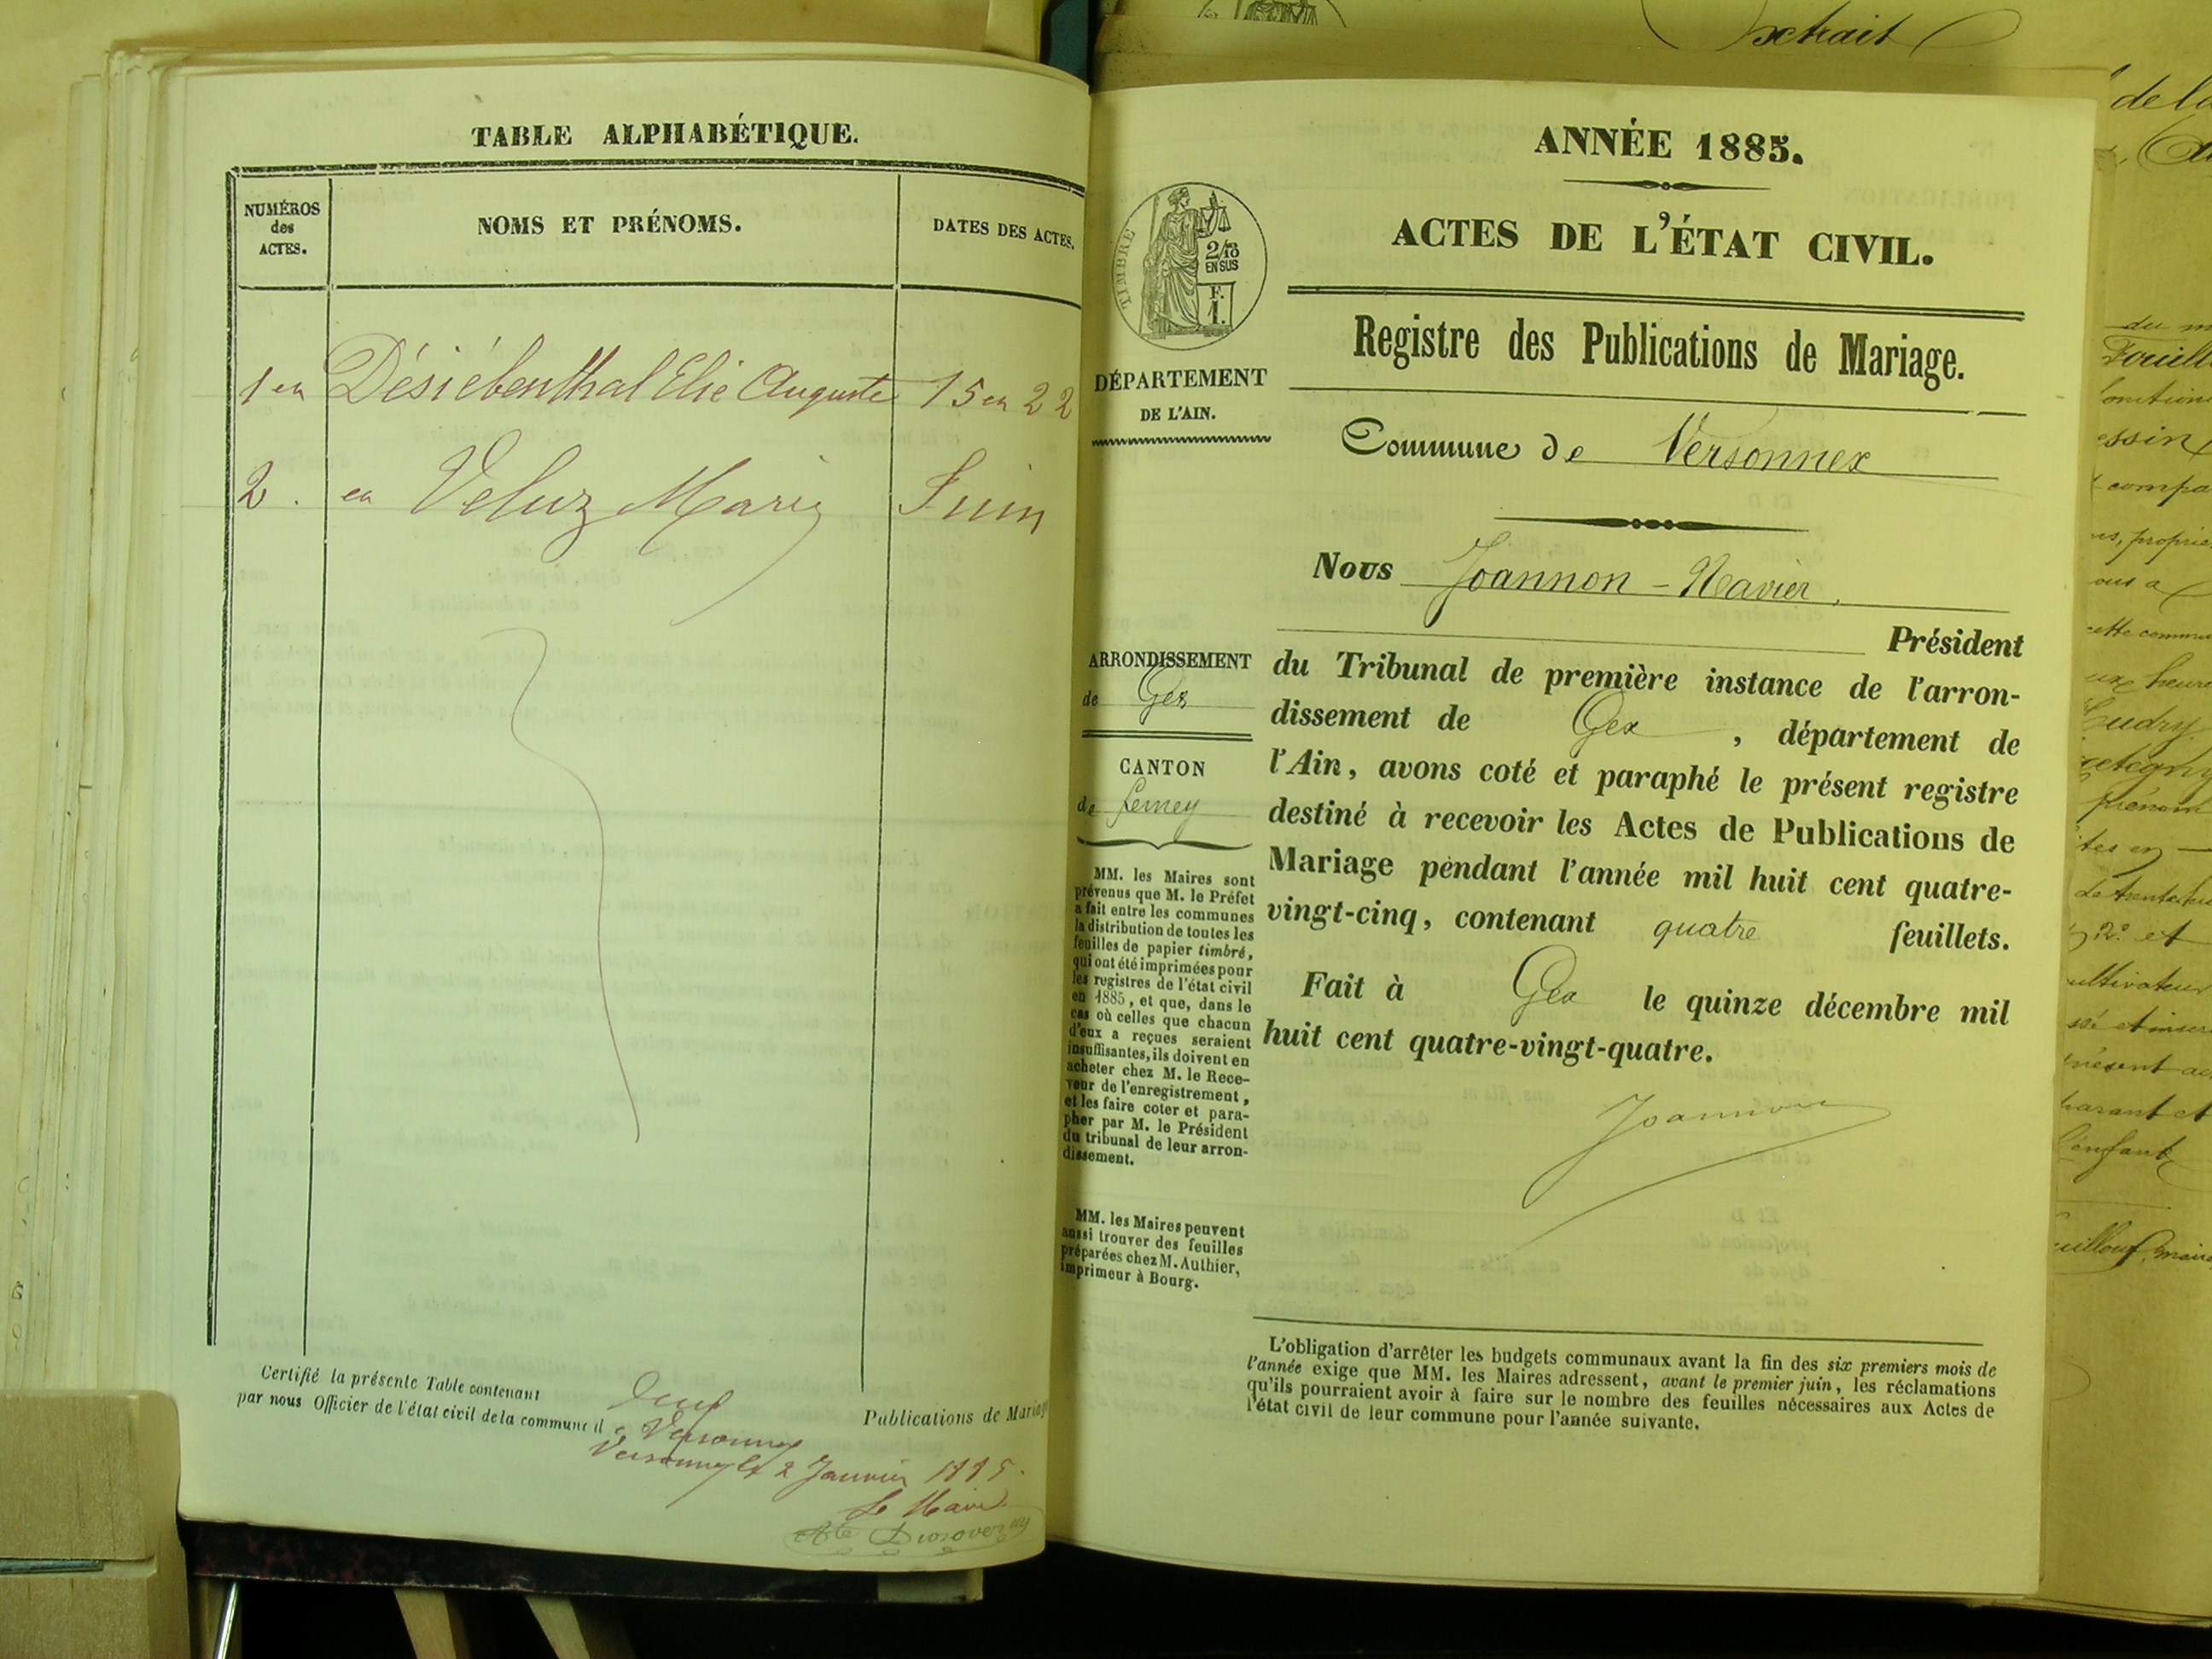 TABLE ALPHABÉTIQUE.
NUMÉROS
des
ACTES.
NOMS ET PRÉNOMS.
DATES DES ACTES.
1 et Désiébenthal Elie Auguste 15 et 22
2. et Veluz Marie Juin
Certifié la présente Table contenant deux
par nous Officier de l'état civil de la commune d e Versonnex
Publications de Mariage
Versonnex le 2 Janvier 1885.
Le Maire
ANNÉE 1885.
ACTES DE L'ÉTAT CIVIL.
TIMBRE
2/10
EN SUS
F.
1.
DÉPARTEMENT
DE L'AIN.
Registre des Publications de Mariage.
Commune de Versonnex
Nous Joannon - Xavier,
Président
du Tribunal de première instance de l'arron-
dissement de Gex, département de
l'Ain, avons coté et paraphé le présent registre
destiné à recevoir les Actes de Publications de
Mariage pendant l'année mil huit cent quatre-
vingt-cinq, contenant quatre feuillets.
Fait à Gex le quinze décembre mil
huit cent quatre-vingt-quatre.
Joannon
ARRONDISSEMENT
de Gex
CANTON
de Ferney
MM. les Maires sont
prévenus que M. le Préfet
a fait entre les communes
la distribution de toutes les
feuilles de papier timbré,
qui ont été imprimées pour
les registres de l'état civil
en 1885, et que, dans le
cas où celles que chacun
d'eux a reçues seraient
insuffisantes, ils doivent en
acheter chez M. le Rece-
veur de l'enregistrement,
et les faire coter et para-
pher par M. le Président
du tribunal de leur arron-
dissement.
MM. les Maires peuvent
aussi trouver des feuilles
préparées chez M. Authier,
imprimeur à Bourg.
L'obligation d'arrêter les budgets communaux avant la fin des six premiers mois de
l'année exige que MM. les Maires adressent, avant le premier juin, les réclamations
qu'ils pourraient avoir à faire sur le nombre des feuilles nécessaires aux Actes de
l'état civil de leur commune pour l'année suivante.
extrait
de la
essin
compa
ns, proprié
ous a
cette commu
heure
prénom
et
ultivateur
présent ac
parant et
l'enfant
maire